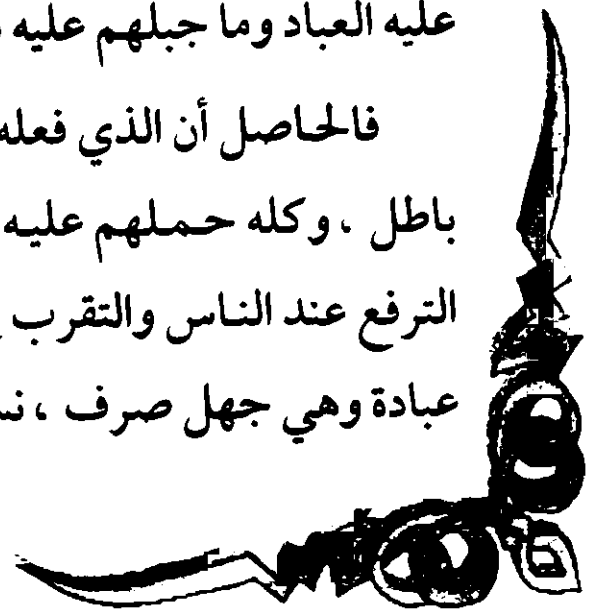 عليه العباد وما جبلهم عليه
فالحاصل أن الذي فعله
باطل ، وكله حملهم عليه
الترفع عند الناس والتقرب
عبادة وهي جهل صرف ،